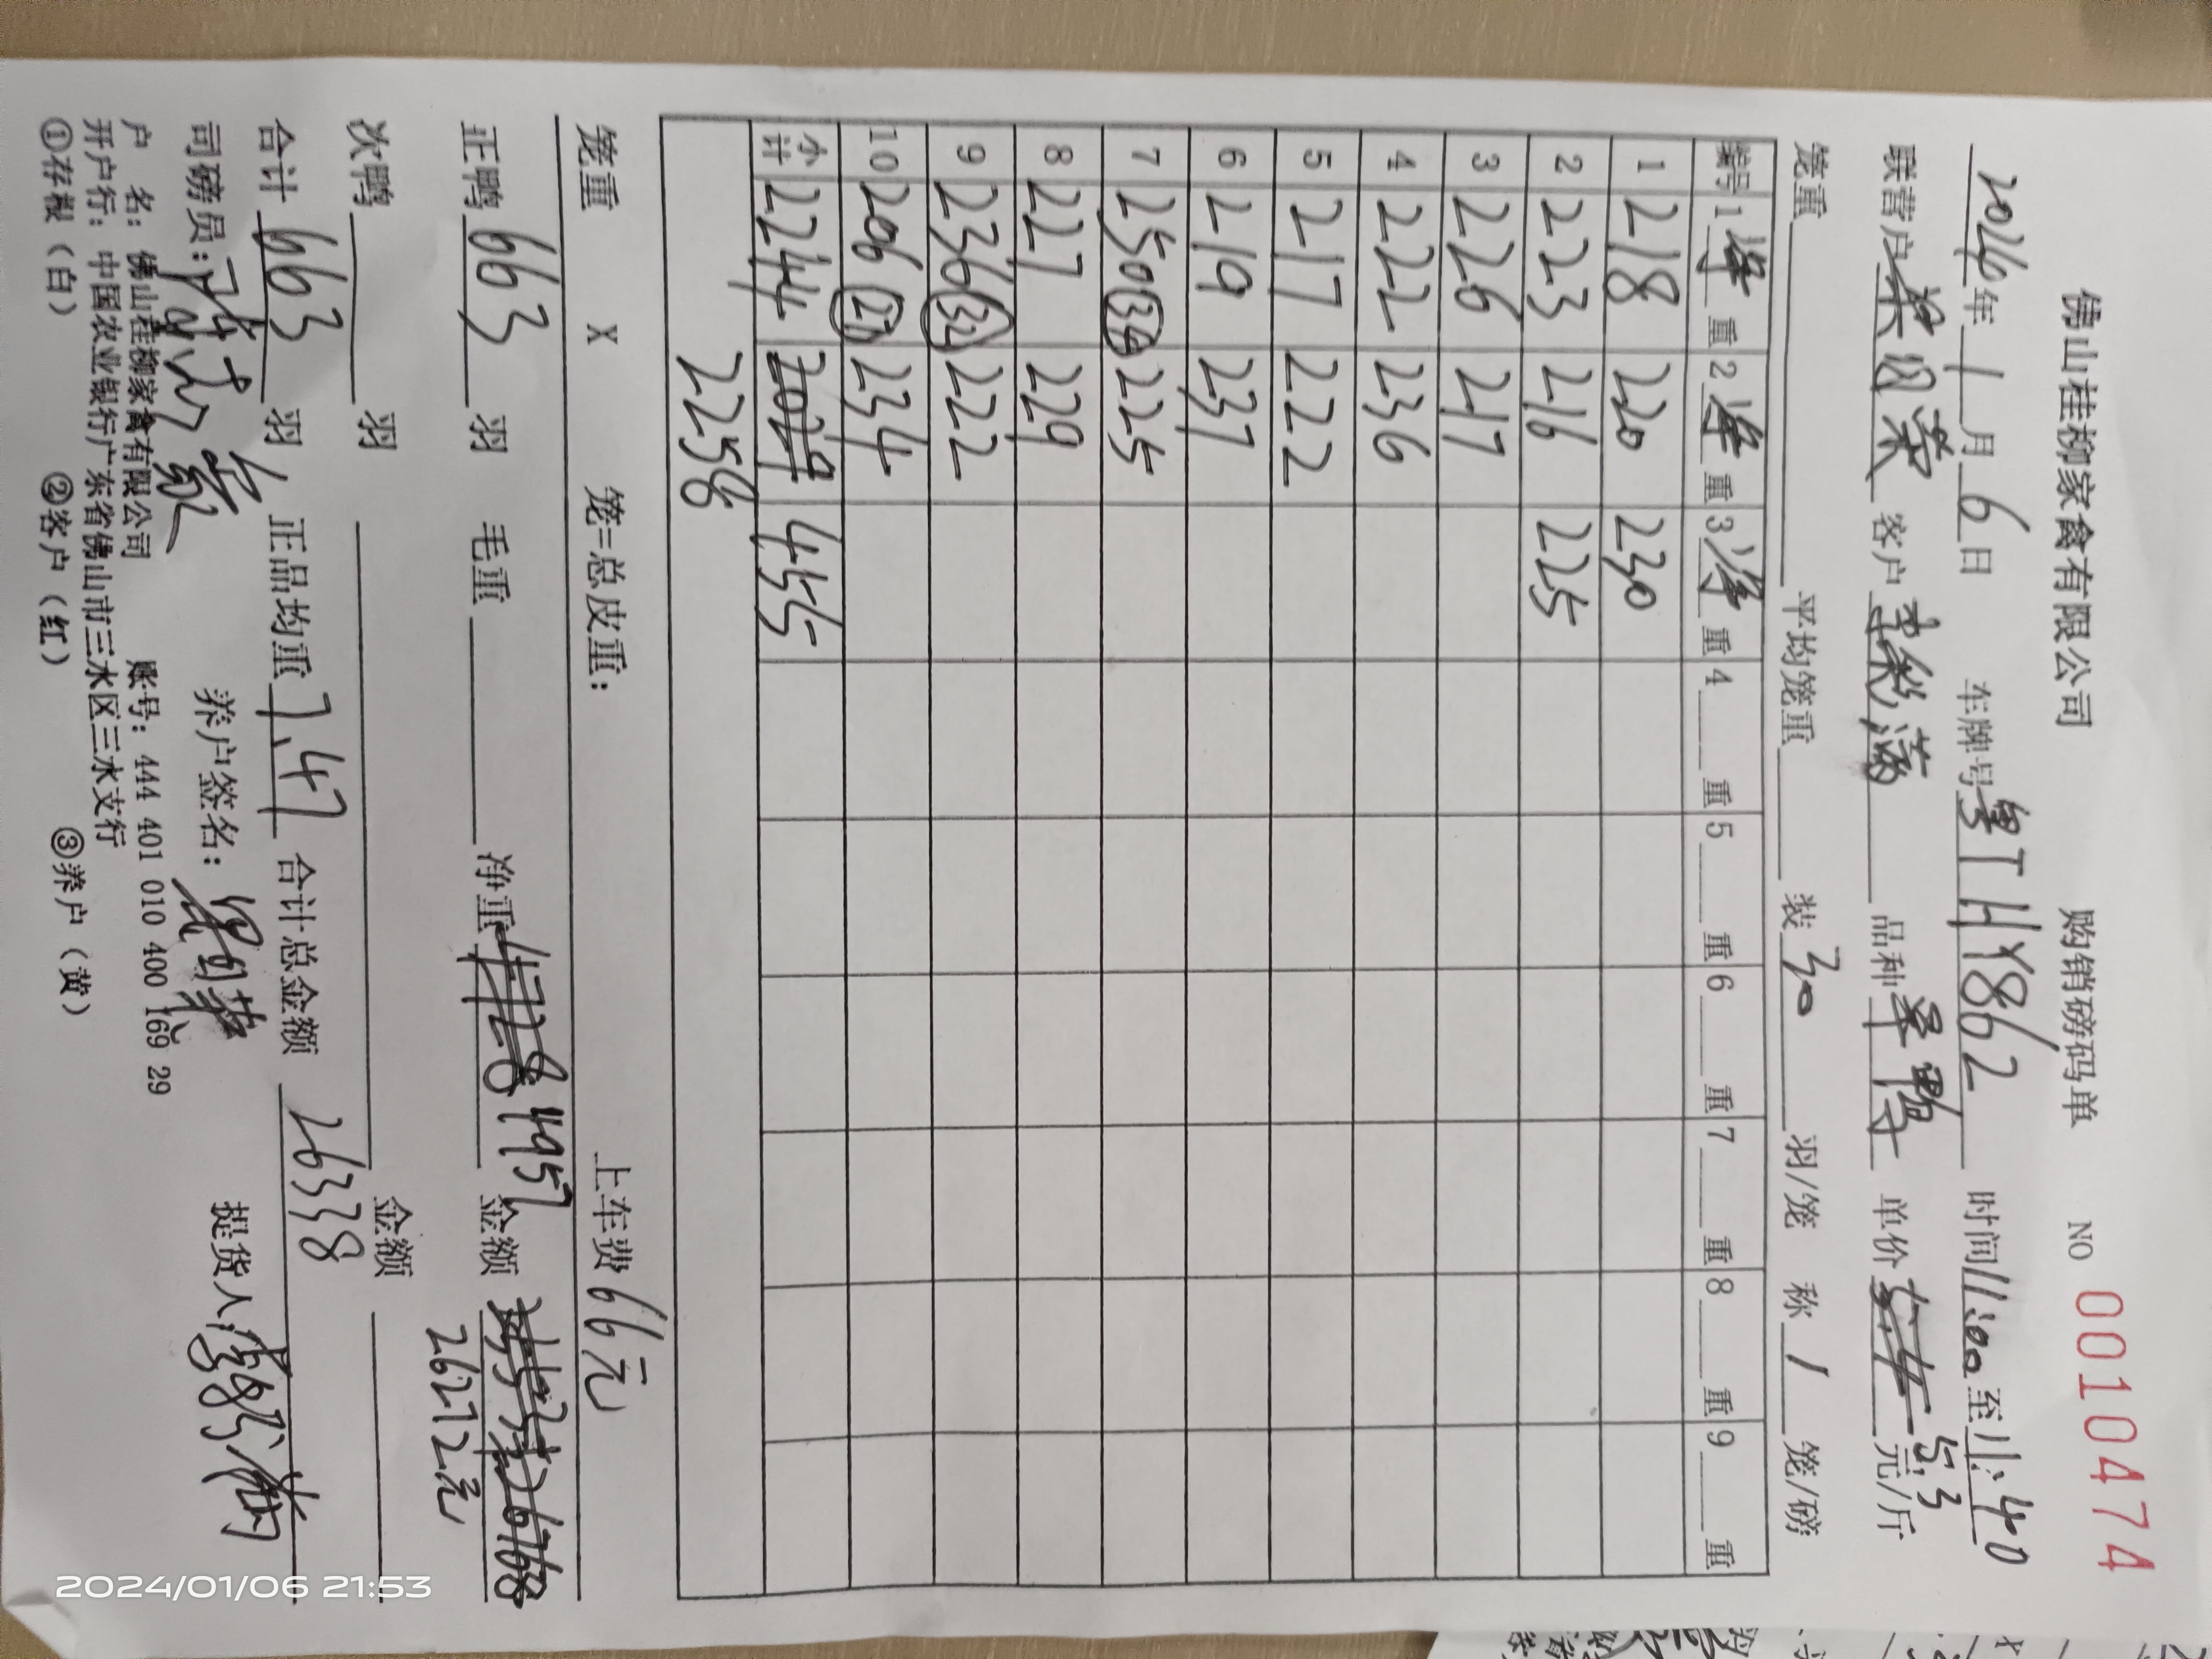 佛山桂柳家禽有限公司 购销磅码单 NO 0010474
2024年1月6日 车牌号粤THY862 时间11:00至11:40
联营户 客户 品种 单价5.3元/斤
笼重 平均笼重 装30羽/笼 称1笼/磅
编号 1净重 2净重 3净重 4 重 5 重 6 重 7 重 8 重 9 重
1 218 220 230
2 223 216 225
3 226 217
4 222 236
5 217 222
6 219 237
7 250 34 225
8 227 229
9 236 32 222
10 206 27 234
小计 2244 2029 455
2258
笼重 X 笼=总皮重: 上车费66元
正鸭663羽 毛重 净重4728 4957 金额 26768
26272元
次鸭 羽 金额
合计663羽 正品均重7.47 合计总金额 26338
司磅员: 养户签名: 提货人:
户 名: 佛山桂柳家禽有限公司 账号: 444 401 010 400 169 29
开户行: 中国农业银行广东省佛山市三水区三水支行
①存根(白) ②客户(红) ③养户(黄)
2024/01/06 21:53